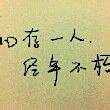 心存一人.
经年不朽